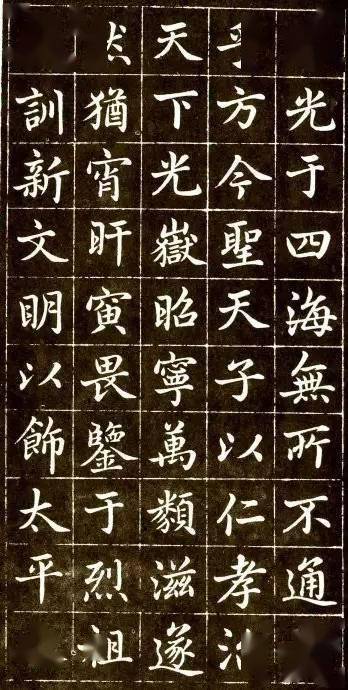 光于四海無所不通
方今聖天子以仁孝
天下光嶽昭寧萬類滋遂
猶宵旰寅畏鑒于烈祖
訓新文眀以飾太平